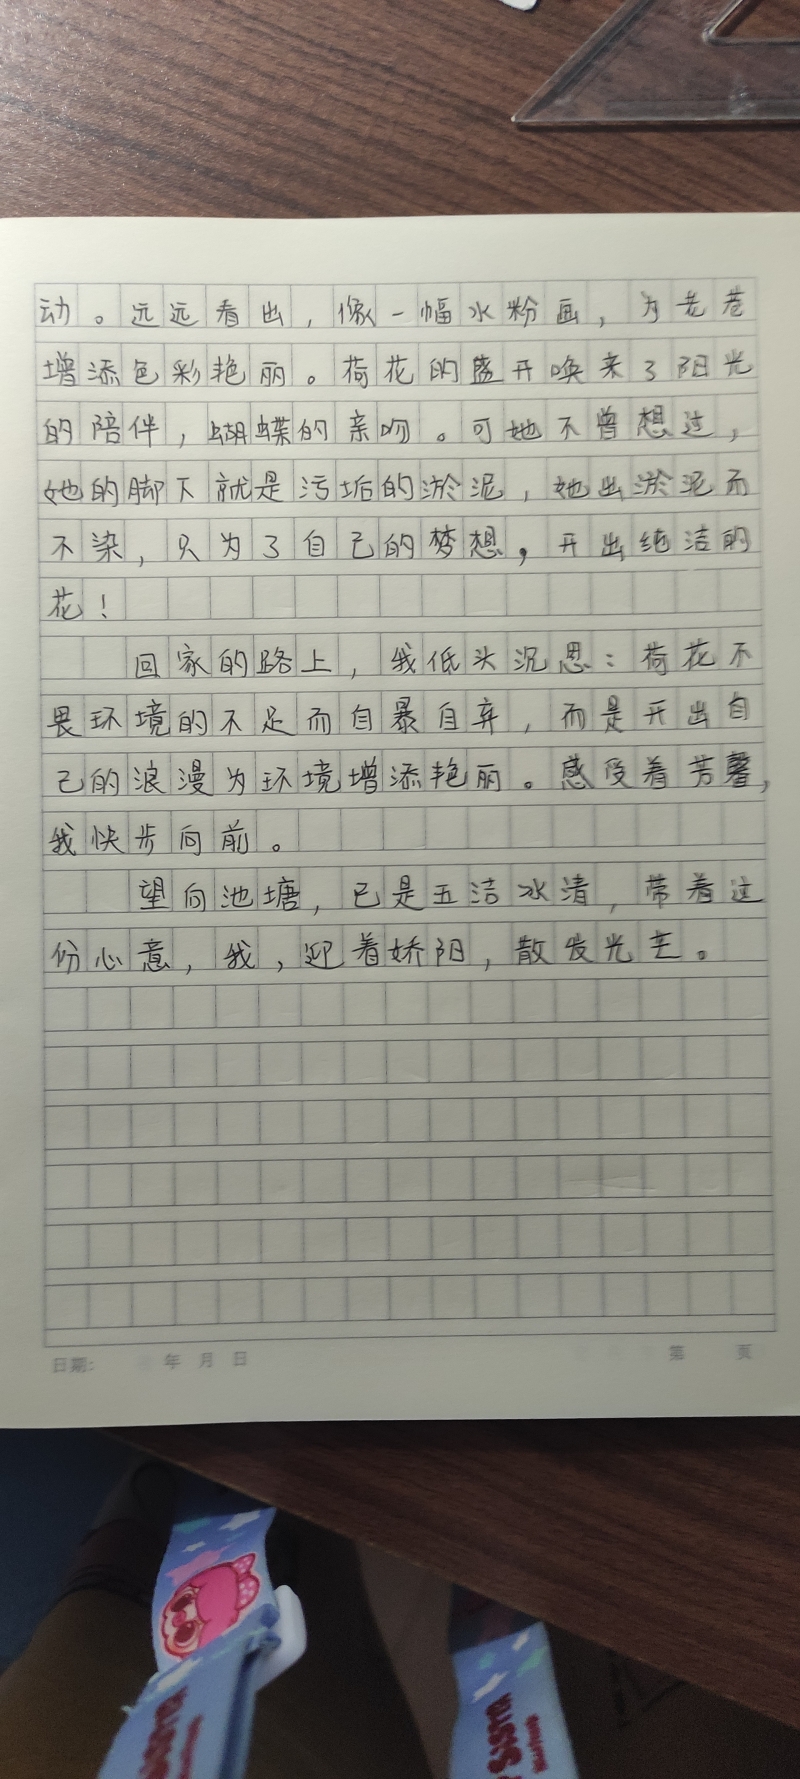 动。远远看出，像一幅水粉画，为老巷
增添色彩艳丽。荷花的盛开唤来了阳光
的陪伴，蝴蝶的亲吻。可她不曾想过，
她的脚下就是污垢的淤泥，她出淤泥而
不染，只为了自己的梦想，开出纯洁的
花！
回家的路上，我低头沉思：荷花不
畏环境的不足而自暴自弃，而是开出自
己的浪漫为环境增添艳丽。感受着芳馨，
我快步向前。
望向池塘，已是五洁水清，带着这
份心意，我，迎着娇阳，散发光芒。
日期: 年 月 日
第 页
SISTER
SISTER